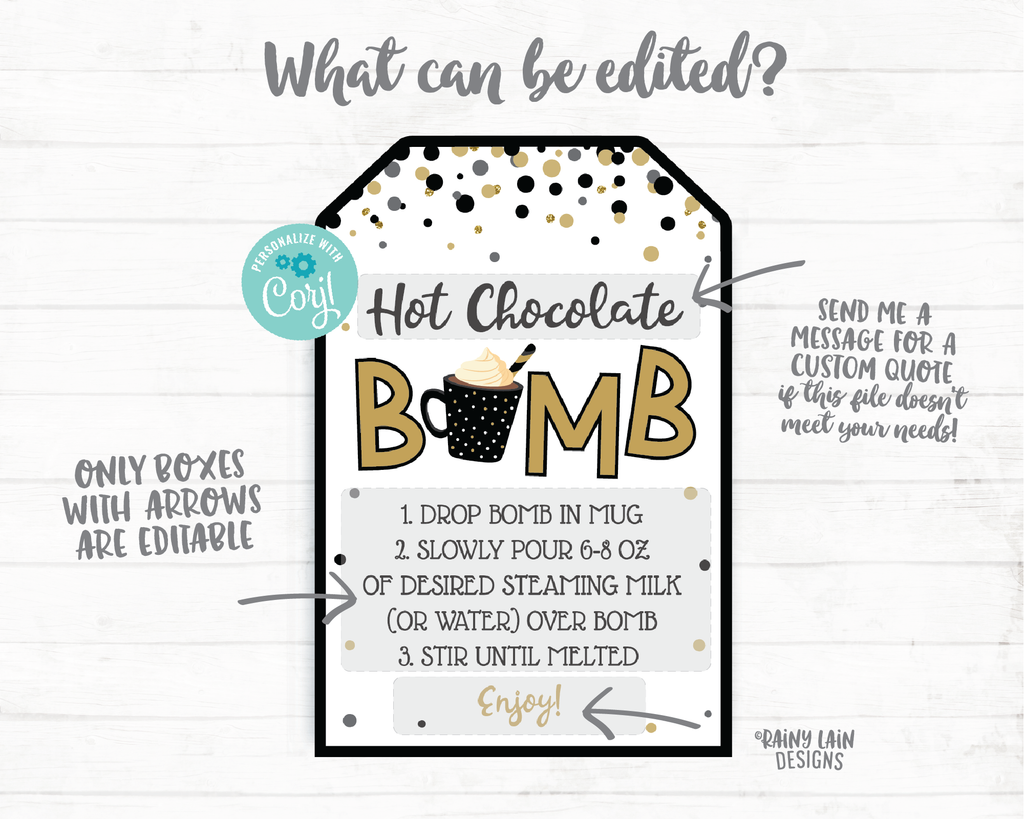 What can be edited?
PERSONALIZE WITH
Corjl
Hot Chocolate
BOMB
SEND ME A
MESSAGE FOR A
CUSTOM QUOTE
if this file doesn't
meet your needs!
ONLY BOXES
WITH ARROWS
ARE EDITABLE
1. DROP BOMB IN MUG
2. SLOWLY POUR 6-8 OZ
OF DESIRED STEAMING MILK
(OR WATER) OVER BOMB
3. STIR UNTIL MELTED
Enjoy!
©RAINY LAIN
DESIGNS